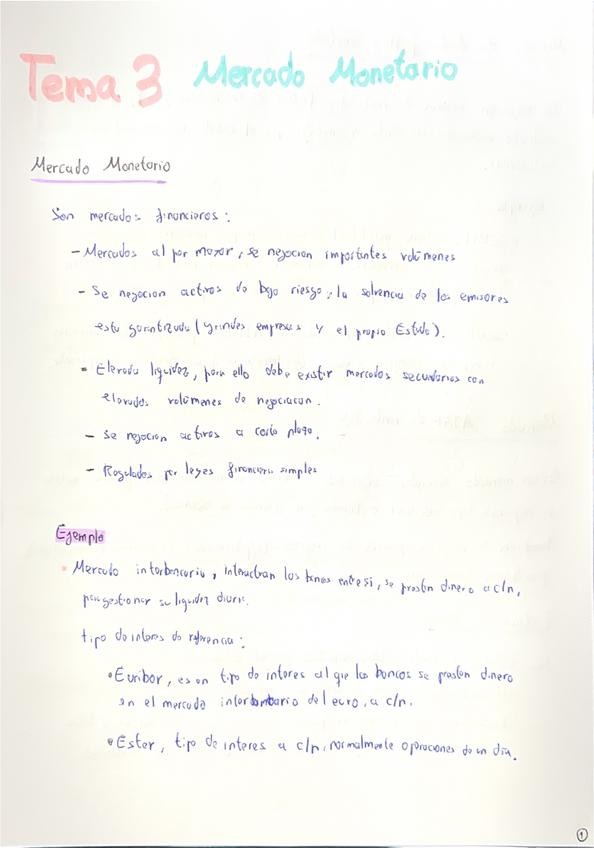 Tema 3 Mercado Monetario
Mercado Monetario
Son mercados financieros:
- Mercados al por mayor, se negocian importantes volúmenes
- Se negocian activos de bajo riesgo, la solvencia de los emisores
esta garantizada (grandes empresas y el propio Estado).
- Elevada liquidez, para ello debe existir mercados secundarios con
elevados volúmenes de negociacion.
- Se negocian activos a corto plazo.
- Regulados por leyes financiera simples
Ejemplo
• Mercado interbancario, interactuan los bancos entre si, se prestan dinero a c/p,
para gestionar su liquidez diaria.
tipo de interes de referencia:
• Euribor, es un tipo de interes al que los bancos se prestan dinero
en el mercado interbantario del euro, a c/p.
• Ester, tipo de interes a c/p, normalmente operaciones de un día.
1